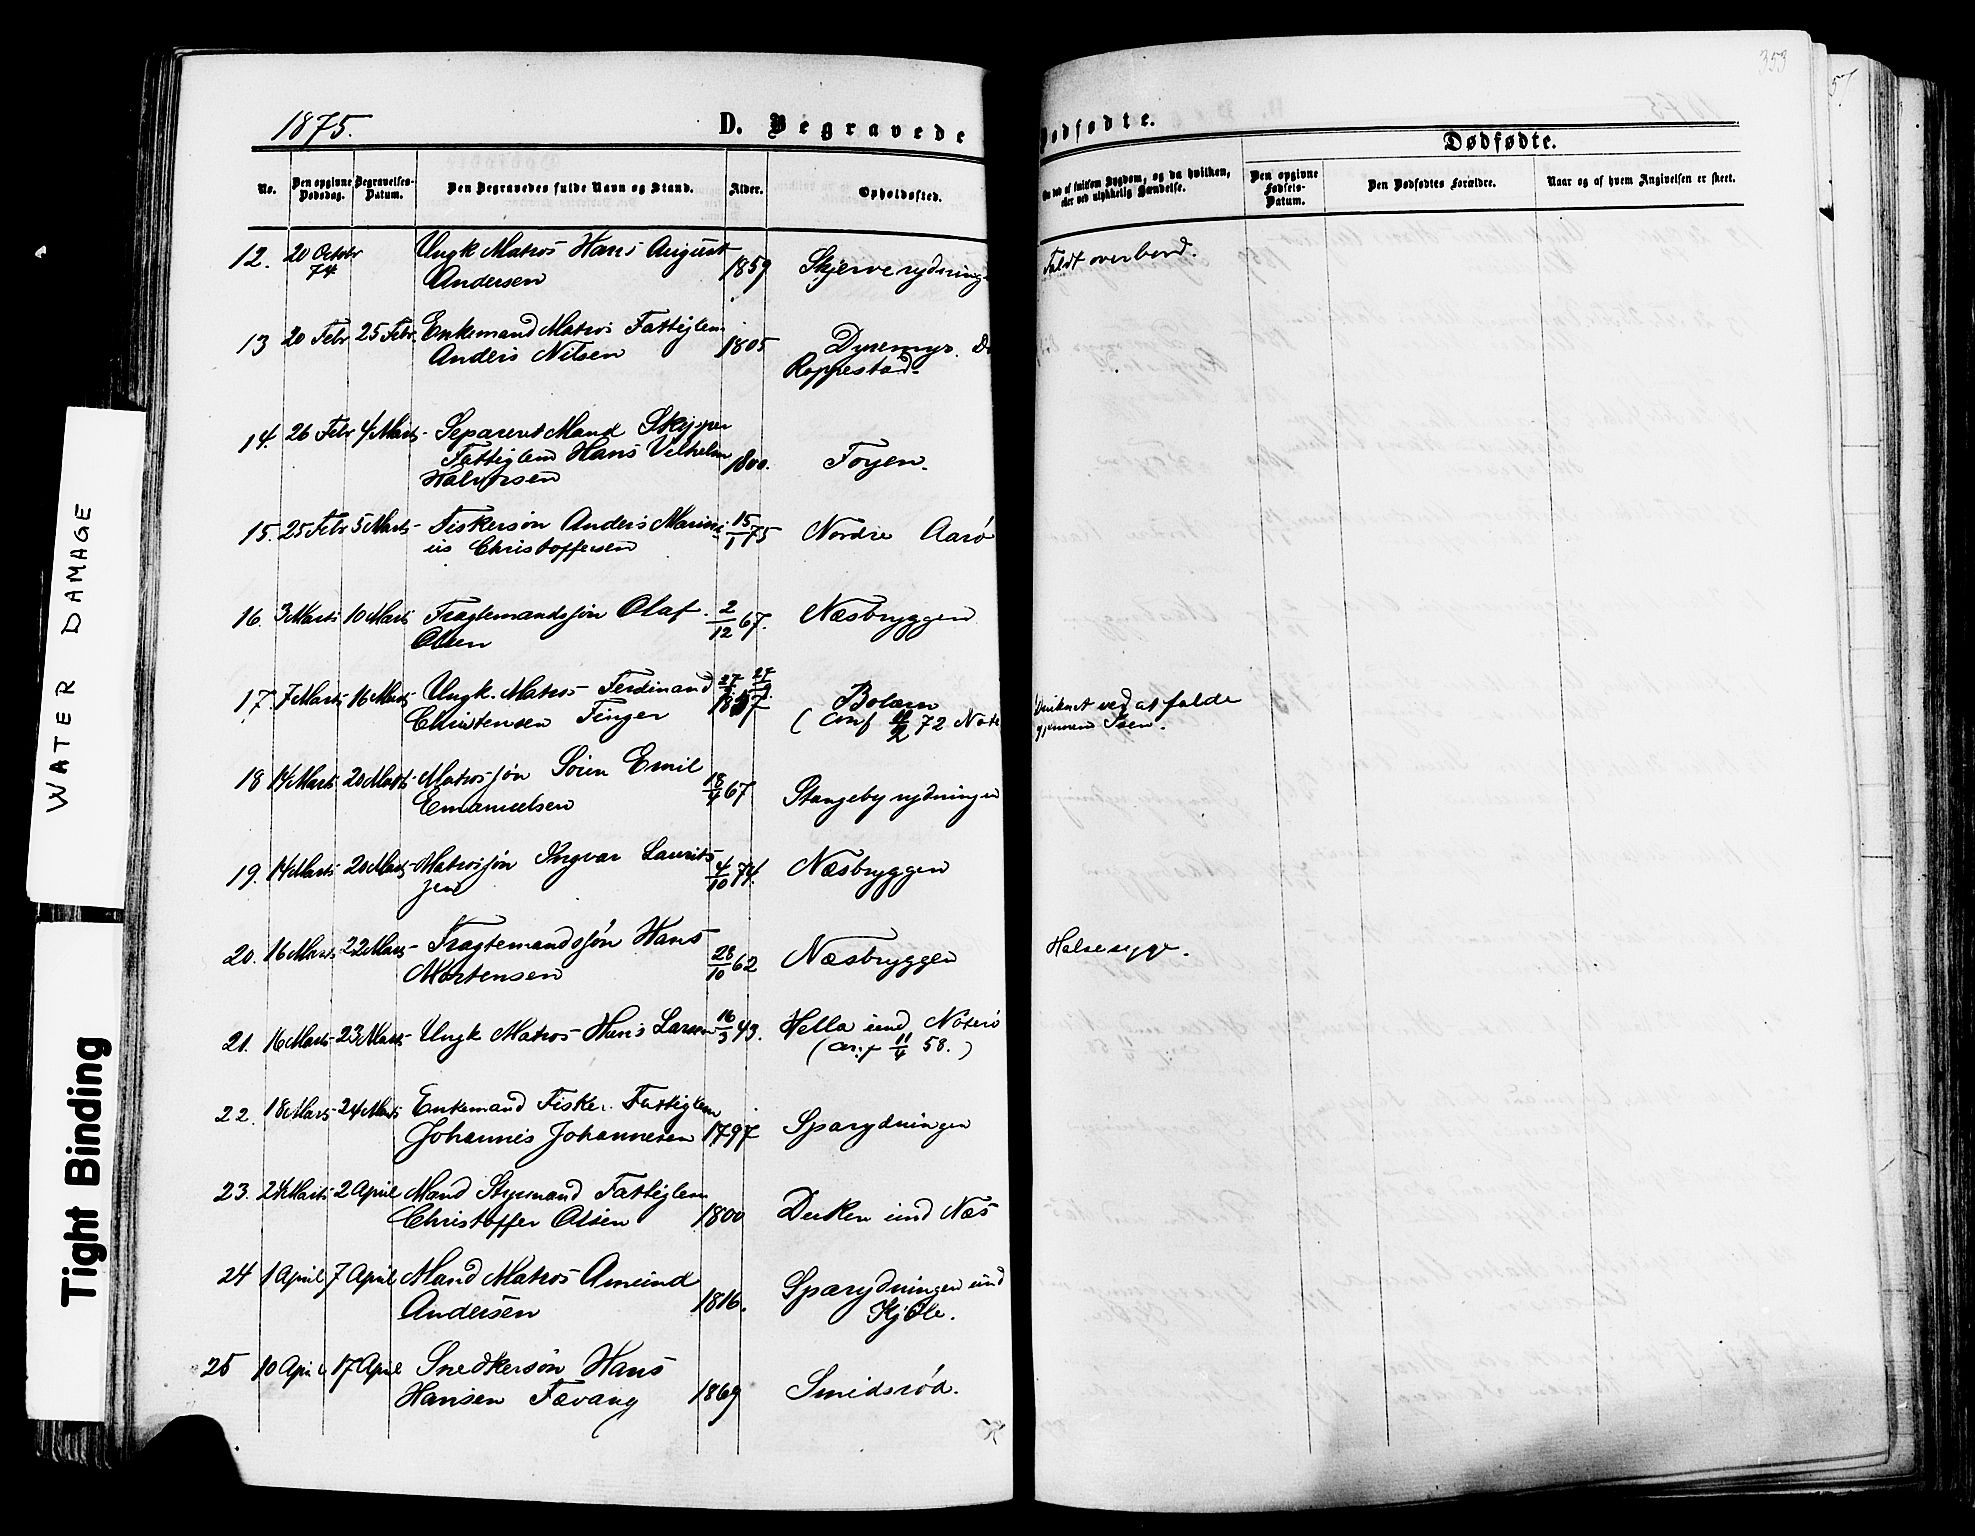 353
57
1875.
D. Begravede
Dødfødte.
Dødfødte.
No.
Den opgivne Dødsdag.
Begravelses-Datum.
Den Begravedes fulde Navn og Stand.
Alder.
Opholdssted.
Om død af smitsom Sygdom, og da hvilken,
eller ved ulykkelig Hændelse.
Den opgivne Fødsels-Datum.
Den Dødfødtes Forældre.
Naar og af hvem Angivelsen er skeet.
12. 20 Octobr 74 Ungk Matros Hans August
Andersen 1859 Skjerverydninge
Faldt overbord.
13 20 Febr 25 Febr. Enkemand Matros Fattiglem
Anders Nilsen 1805 Dyremyr.
Roppestad.
14. 26 Febr 4 Marts Separeret Mand Skipper
Fattiglem Hans Vilhelm
Halvorsen 1800. Toyen.
15. 25 Febr 5 Marts Fiskersøn Anders Marin
us Christoffersen 15/1 75 Nordre Aarö
16. 3 Marts 10 Marts Fragtemandssøn Olaf
Olsen 2/12 67. Næsbryggen
17. 7 Marts 16 Marts Ungk. Matros Ferdinand
Christensen Finger 27/9 1857 27/9 Bolærn
(conf 11/2 72 Nøte
Druknet ved at falde
gjennem Isen.
18 14 Marts 20 Marts Matrossøn Sören Emil
Emanuelsen 18/4 67 Stangeby rydningen
19. 14 Marts 20 Marts Matrossøn Ingvar Laurits
sen 4/10 74. Næsbryggen
20. 16 Marts 22 Marts Fragtemandssøn Hans
Mortensen 28/10 62 Næsbryggen
Halsesyge.
21. 16 Marts 23 Marts Ungk Matros Hans Larsen 16/3 43. Hella und Nøterö
(conf 11/4 58.)
22. 18 Marts 24 Marts Enkemand Fisker Fattiglem
Johannes Johannesen 1797 Sparydningen
23. 24 Marts 2 April Mand Styrmand Fattiglem
Christoffer Olsen 1800 Duken und Næs
24 1 April 7 April Mand Matros Amund
Andersen 1816. Sparydningen und
Kjöle.
25 10 April 17 April Snedkersön Hans
Hansen Fævang 1869 Smidsröd.
WATER DAMAGE
Tight Binding